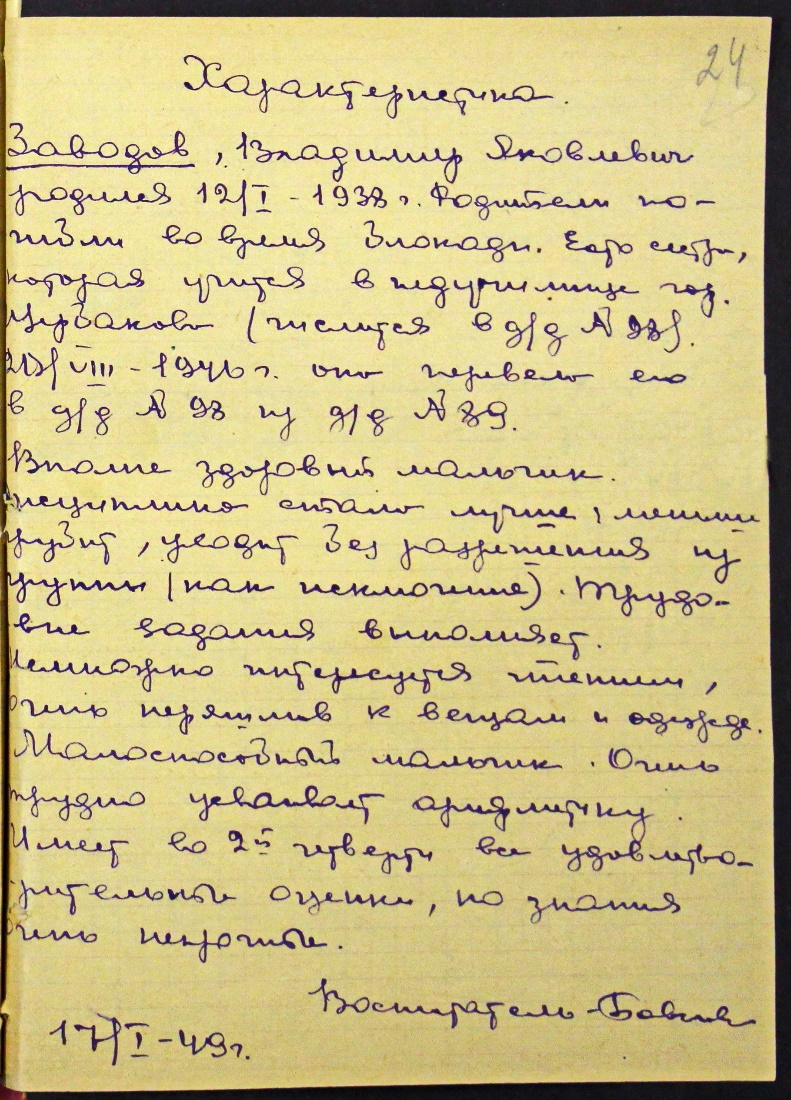 24
Характеристика.
Заводов, Владимир Яковлевич
родился 12/I - 1938 г. Родители по-
гибли во время блокады. Есть сестра,
которая учится в педучилище гор.
Щербакова (числится в д/д № 98).
/VIII - 1946 г. она перевела его
в д/д № 98 из д/д № 89.
Вполне здоровый мальчик.
Дисциплина стала лучше, меньше
грубит, уходит без разрешения из
группы (как исключение). Трудо-
вые задания выполняет.
Немножко интересуется чтением,
очень неряшлив к вещам и одежде.
Малоспособный мальчик. Очень
трудно усваивает арифметику.
Имеет во 2й четверти все удовлетво-
рительные оценки, но знания
очень непрочные.
Воспитатель
17/I - 49 г.